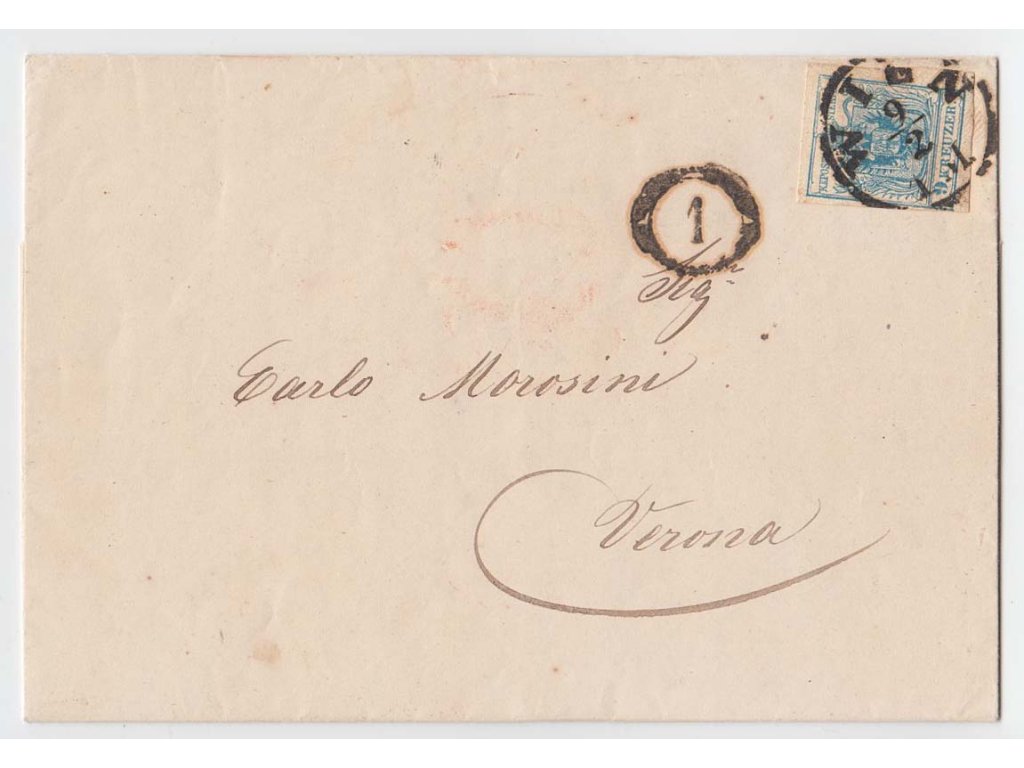 WIEN
9/2
9 KREUZER
1
Sigr
Carlo Morosini
Verona